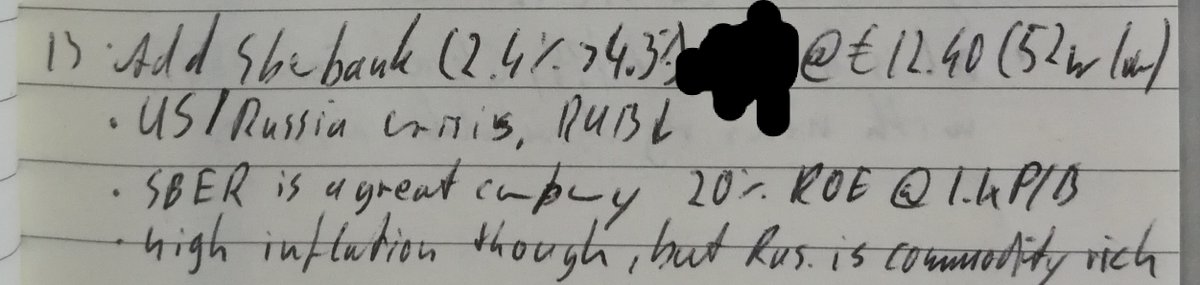 13 · Add Sberbank (2.4% > 4.3%) @ € 12.40 (52w low)
· US/Russia crisis, RUB ↓
· SBER is a great company 20% ROE @ 1.4 P/B
· high inflation though, but Rus. is commodity rich